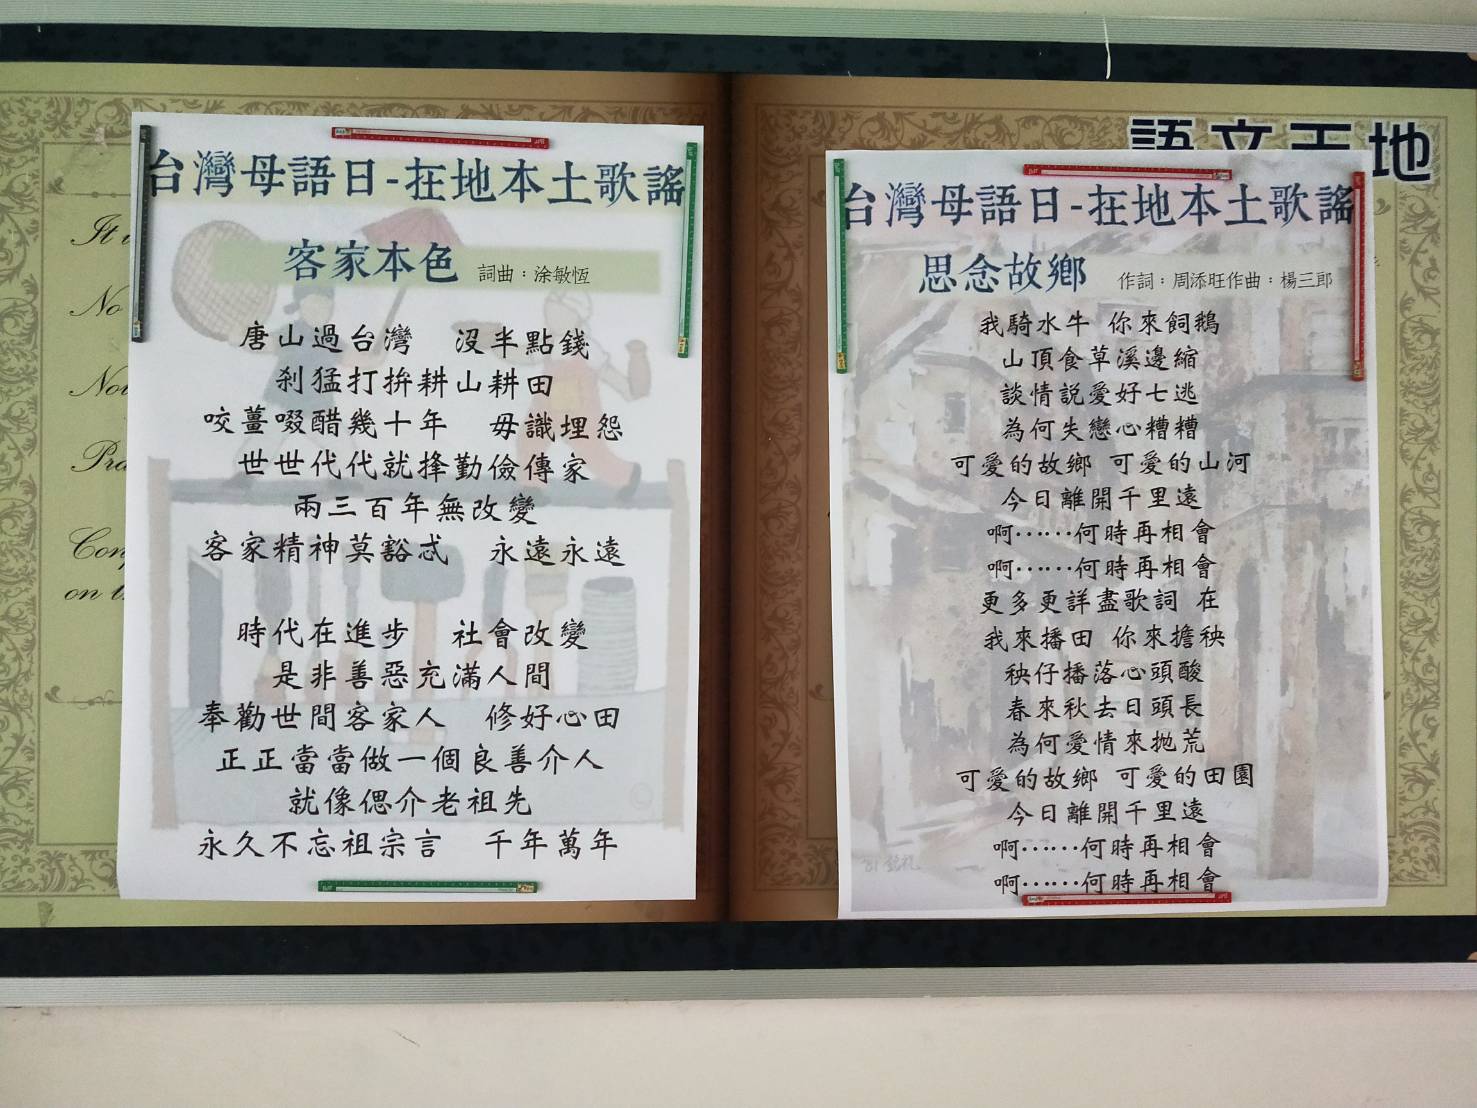 台灣母語日-在地本土歌謠
客家本色 詞曲：涂敏恆
唐山過台灣 沒半點錢
剎猛打拚耕山耕田
咬薑啜醋幾十年 毋識埋怨
世世代代就擇勤儉傳家
兩三百年無改變
客家精神莫豁忒 永遠永遠
時代在進步 社會改變
是非善惡充滿人間
奉勸世間客家人 修好心田
正正當當做一個良善介人
就像偲介老祖先
永久不忘祖宗言 千年萬年
語文天地
台灣母語日-在地本土歌謠
思念故鄉 作詞：周添旺作曲：楊三郎
我騎水牛 你來飼鵝
山頂食草溪邊縮
談情說愛好七逃
為何失戀心糟糟
可愛的故鄉 可愛的山河
今日離開千里遠
啊……何時再相會
啊……何時再相會
更多更詳盡歌詞 在
我來播田 你來擔秧
秧仔播落心頭酸
春來秋去日頭長
為何愛情來拋荒
可愛的故鄉 可愛的田園
今日離開千里遠
啊……何時再相會
啊……何時再相會